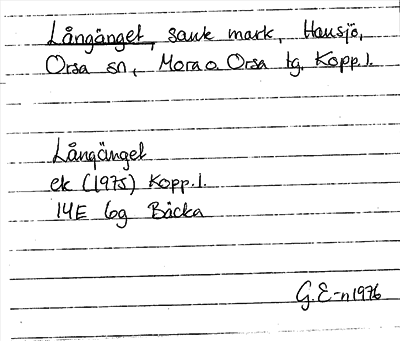 Långänget, sank mark, Hansjö,
Orsa sn, Mora o Orsa tg, Kopp.l.
Långänget
ek (1975) Kopp.l.
14E 6g Bäcka
G.E-n 1976